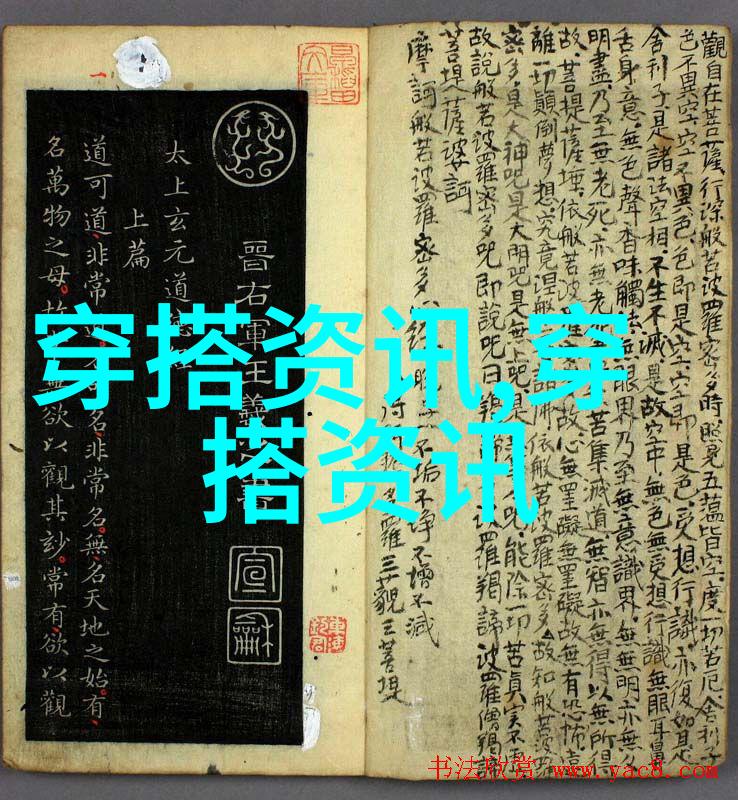 穿搭资讯,穿
搭资讯
觀自在菩薩行深般若波羅密多時照見五蘊皆空度一切苦厄舍利子
色不異空空不異色色即是空空即是色受想行識亦復如是
舍利子是諸法空相不生不滅是故空中無色無受想行識無眼耳鼻
舌身意無色聲香味觸法無眼界乃至無意識界無無明亦無
明盡乃至無老死亦無老 苦集滅道無智亦無得以無所得
故菩提薩埵依般若波羅 故心無罣礙無罣礙故無有恐怖遠
離一切顛倒夢想究竟涅槃 諸佛依般若波羅密多故知般若波
密多是大神咒是大明咒是無上咒是 咒能除一切苦真實不
故說般若波羅密多咒即說咒曰羯諦 波羅羯諦波羅僧羯諦
菩提薩婆訶
不垢不淨不增不減
摩訶般若波羅密多
多羅三藐三菩提
晉右軍王羲
宣
龢
太上玄元道
上篇
道可道非常 名非常名無名天地之始有
名萬物之母故 無欲以觀其妙常有欲以觀
书法欣赏 www.yac8.com